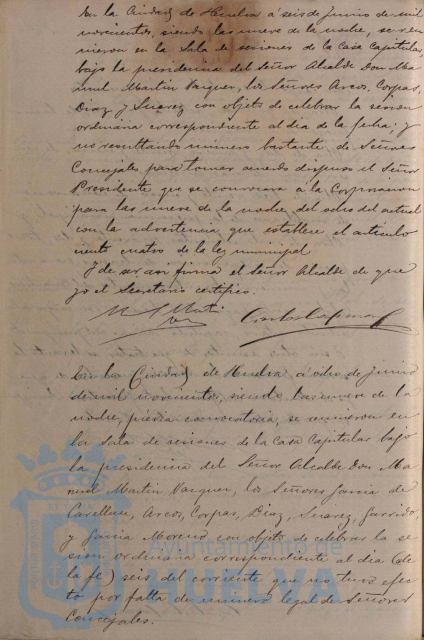 En la Ciudad de Huelva á seis de Junio de mil
novecientos, siendo las nueve de la noche, se reu-
nieron en la Sala de sesiones de la Casa Capitular,
bajo la presidencia del Señor Alcalde Don Ma-
nuel Martin Vazquez, los Señores Arcos, Corpas,
Diaz y Suarez con objeto de celebrar la sesion
ordinaria correspondiente al dia de la fecha: y
no resultando número bastante de Señores
Concejales para tomar acuerdo dispuso el Señor
Presidente que se convocara á la Corporacion
para las nueve de la noche del ocho del actual
con la advertencia que establece el artículo
ciento cuatro de la ley municipal
Y de ser asi firma el Señor Alcalde de que
yo el Secretario certifico.
En la Ciudad de Huelva á ocho de Junio
de mil novecientos, siendo las nueve de la
noche, previa convocatoria, se reunieron en
la Sala de sesiones de la Casa Capitular bajo
la presidencia del Señor Alcalde Don Ma-
nuel Martin Vazquez, los Señores Garcia de
Arcos, Corpas, Diaz, Suarez, Garrido,
y Garcia Moreno con objeto de celebrar la se-
sion ordinaria correspondiente al dia (de
la fe) seis del corriente que no tuvo efec-
to por falta de número legal de Señores
Concejales.
Ayuntamiento de
HUELVA